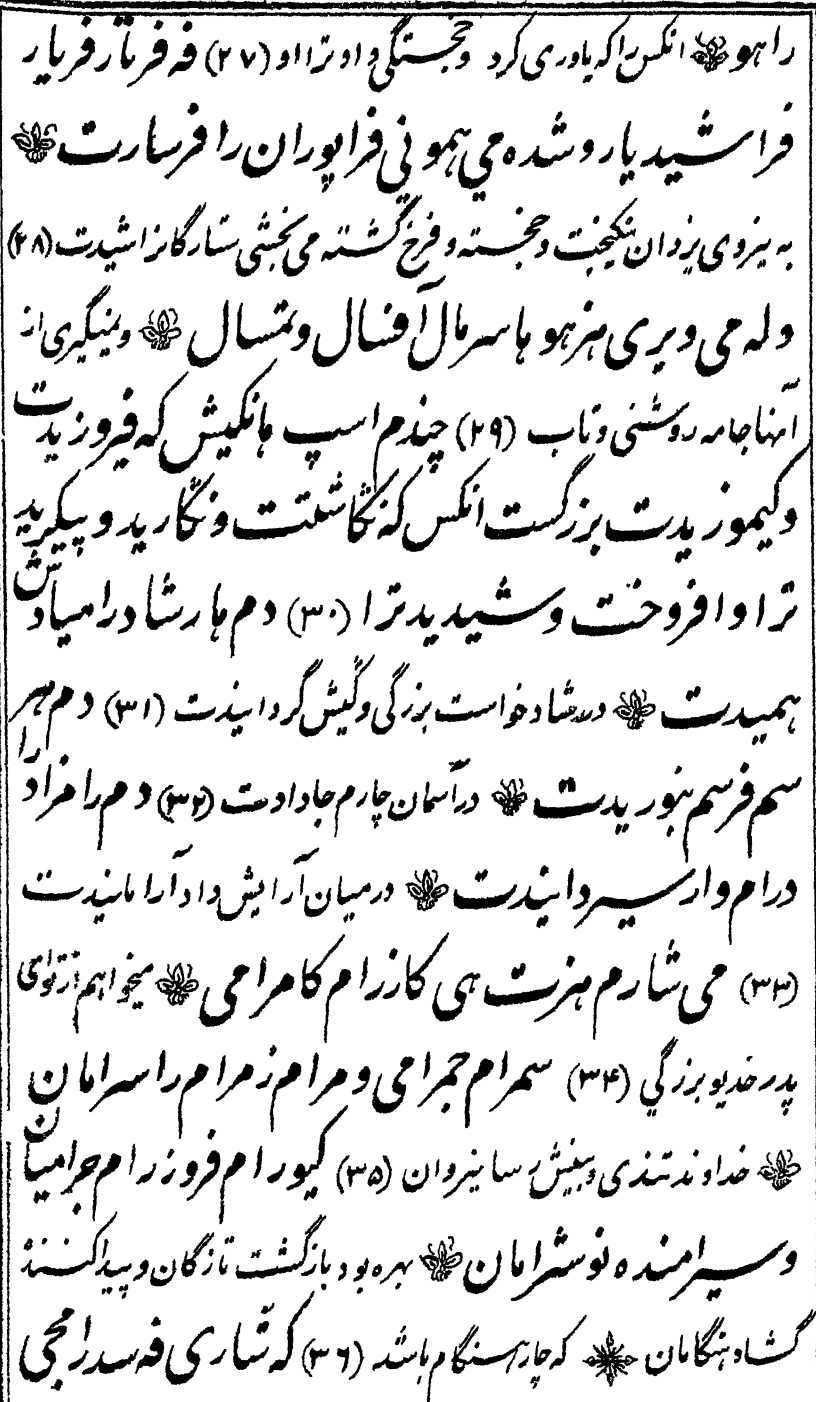 را هو انکس را که یاوری کرد وخجستگی داد ترا او (۲۷) فه فرتار فریار
فراشیدیار وشده می همونی فراپوران را فرسارت
به نیروی یزدان نیکبخت وخجسته وفرخ گشته می بخشی ستارگانرا شیدت (۲۸)
وله می ویری هنر هو ها سرمال آفسال وتمسال ومیگیری از
آنها جامه روشنی وتاب (۲۹) چندم اسپ هانکیش که فیروزیدت
وکیموزیدت بزرگست انکس که نگاشتت ونگارید وپیکرید
ترا وافروخت وشیدید ترا (۳۰) دم هارشاد رامیادش
همیدت در شاد خواست بزرگی وکیش گردانیدت (۳۱) دم مهر
سم فرسم نبوریدت در آسمان چارم جا دادت (۳۲) دم رامزاد را
درام وارسیردانیدت در میان آرایش داد آرامانیدت
(۳۳) می شارم هنرت هی کازرام کامرامی میخواهم از تو ای
پدر خدیو بزرگی (۳۴) سمرام جمرامی ومرام زمرام راسرامان
خداوند تندی وبینش رسا نیروان (۳۵) کیورام فروزرام جرامیان
وسیرامنده نوشرامان بهره بود بازگشت تازگان وپیدا کننده
گشاد هنگامان که چار هنگام باشد (۳۶) که شاری فه سدرامجی